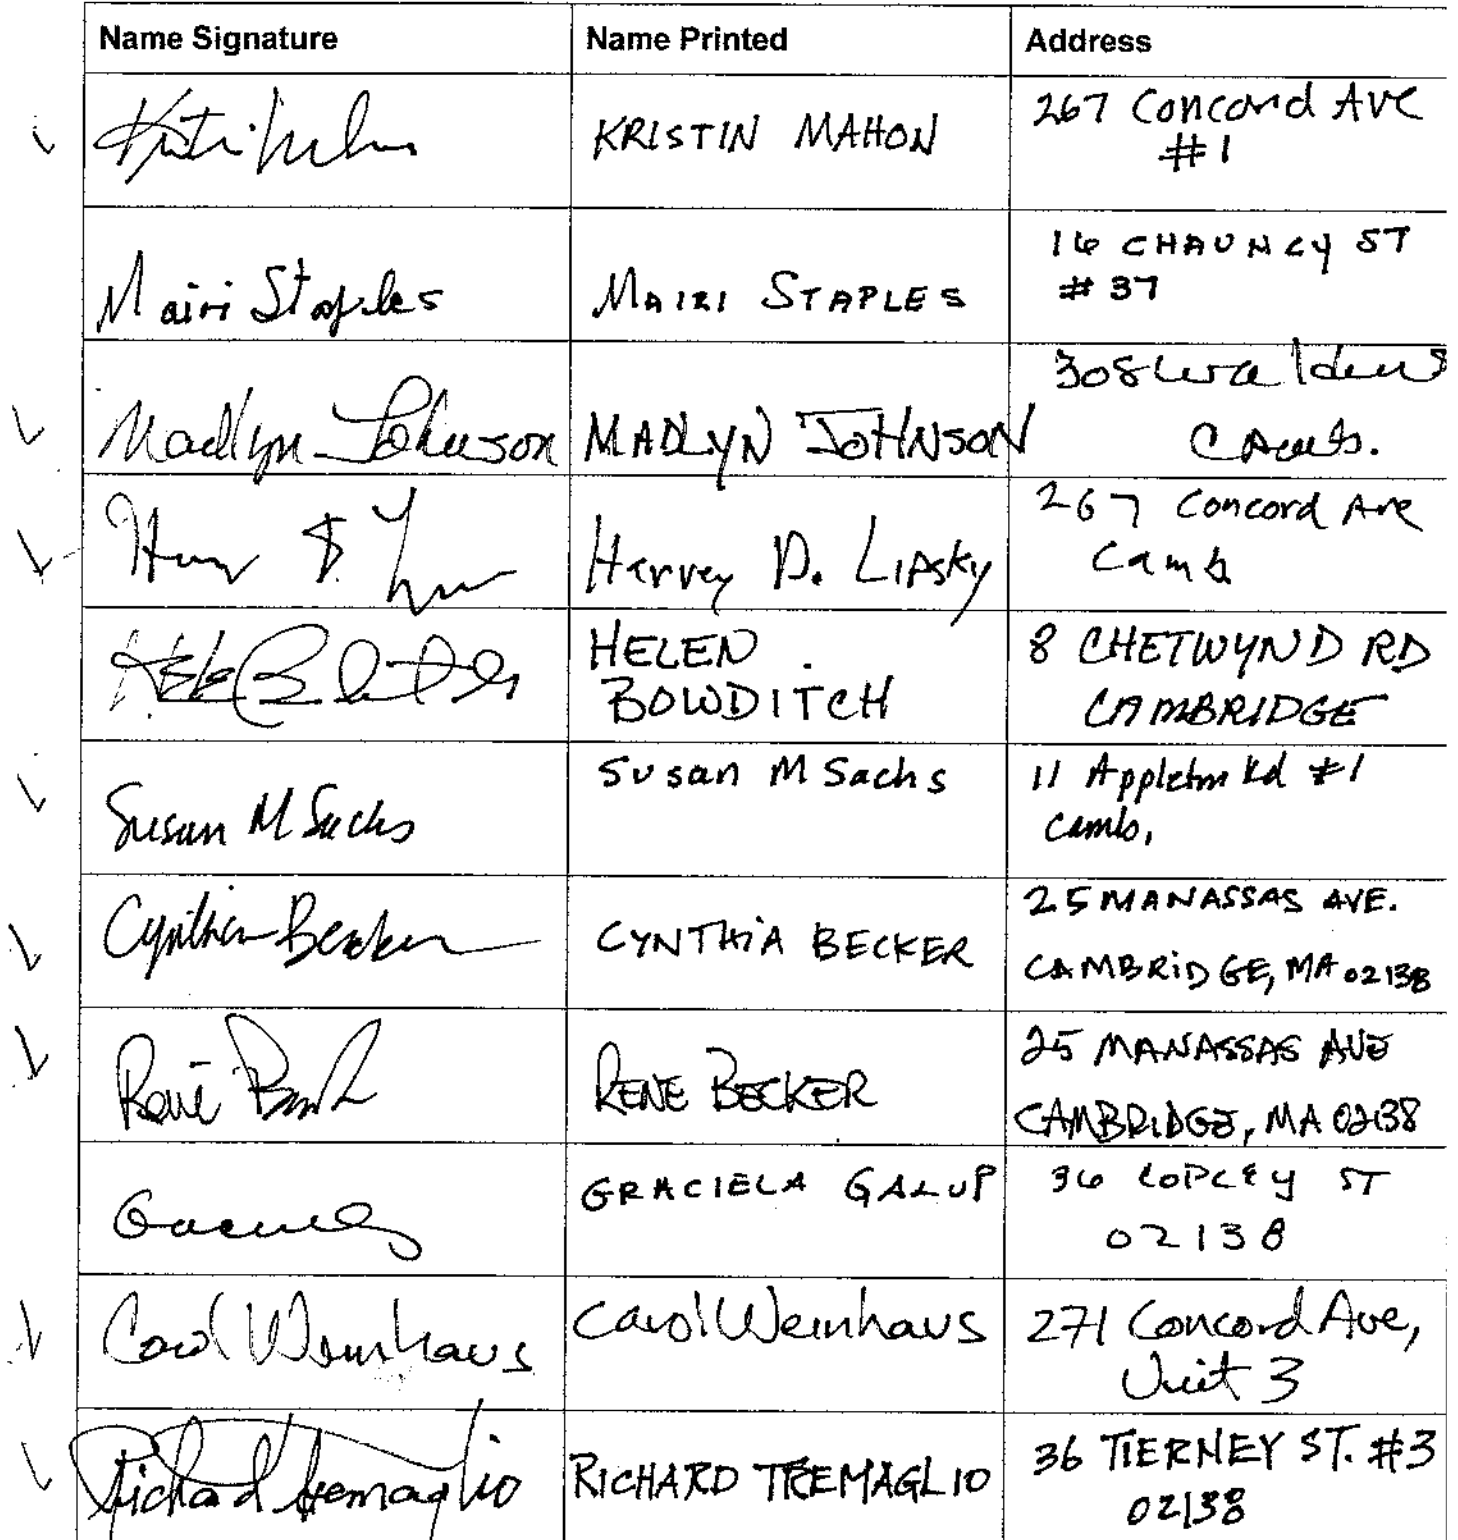 Name Signature Name Printed Address
KRISTIN MAHON 267 Concord Ave
#1
Mairi Staples MAIRI STAPLES 16 CHAUNCY ST
#37
Madlyn Johnson MADLYN JOHNSON 308 Walden
Camb.
Harvey D. LIPSKY 267 Concord Ave
Camb
HELEN 8 CHETWYND RD
BOWDITCH CAMBRIDGE
Susan M Sachs Susan M Sachs 11 Appleton Rd #1
Camb,
Cynthia Becker CYNTHIA BECKER 25 MANASSAS AVE.
CAMBRIDGE, MA 02138
René RENE BECKER 25 MANASSAS AVE
CAMBRIDGE, MA 02138
GRACIELA GALUP 36 COPLEY ST
02138
Carol Weinhaus Carol Weinhaus 271 Concord Ave,
Unit 3
Richard Tremaglio RICHARD TREMAGLIO 36 TIERNEY ST. #3
02138